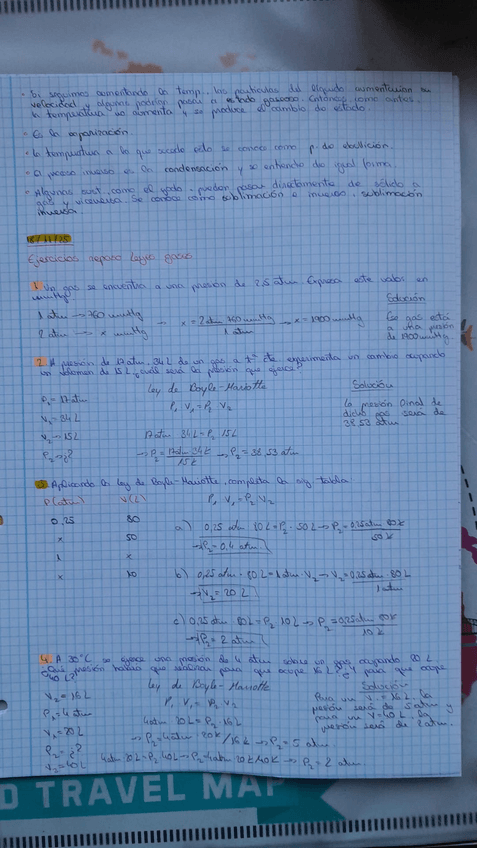 · Si seguimos aumentando la temp., las partículas del líquido aumentarían su
velocidad y algunas podrían pasar a estado gaseoso. Entonces, como antes,
la temperatura no aumenta y se produce el cambio de estado.
· Es la vaporización.
· La temperatura a la que sucede esto se conoce como p. de ebullición.
· El proceso inverso es la condensación y se entiende de igual forma.
· Algunas sust. como el yodo, pueden pasar directamente de sólido a
gas y viceversa. Se conoce como sublimación e inversa, sublimación
inversa.
18/11/25
Ejercicios repaso leyes gases
1. Un gas se encuentra a una presión de 2,5 atm. Expresa este valor en
mmHg
1 atm → 760 mmHg
2 atm → x mmHg
x = 2 atm · 760 mmHg / 1 atm → x = 1900 mmHg
Solución
Ese gas está
a una presión
de 1900 mmHg.
2. A presión de 17 atm, 34 L de un gas a tª cte experimenta un cambio ocupando
un volumen de 15 L ¿cuál será la presión que ejerce?
Ley de Boyle-Mariotte
P₁ V₁ = P₂ V₂
P₁ = 17 atm
V₁ = 34 L
V₂ → 15 L
P₂ → ¿?
17 atm · 34 L = P₂ · 15 L
→ P₂ = 17 atm · 34 L / 15 L → P₂ = 38,53 atm
Solución
La presión final de
dicho gas será de
38,53 atm
3. Aplicando la ley de Boyle-Mariotte, completa la sig. tabla:
P (atm) V (L)
0,25 80
x 50
1 x
x 10
P₁ V₁ = P₂ V₂
a) 0,25 atm · 80 L = P₂ · 50 L → P₂ = 0,25 atm · 80 L / 50 L
→ P₂ = 0,4 atm
b) 0,25 atm · 80 L = 1 atm · V₂ → V₂ = 0,25 atm · 80 L / 1 atm
→ V₂ = 20 L
c) 0,25 atm · 80 L = P₂ · 10 L → P₂ = 0,25 atm · 80 L / 10 L
→ P₂ = 2 atm
4. A 30°C se ejerce una presión de 4 atm sobre un gas ocupando 20 L
¿Qué presión habrá que realizar para que ocupe 16 L? ¿Y para que ocupe
40 L?
Ley de Boyle-Mariotte
P₁ V₁ = P₂ V₂
V₂ = 16 L
P₁ = 4 atm
V₁ = 20 L
P₂ = ¿?
V₂ = 40 L
4 atm · 20 L = P₂ · 16 L
→ P₂ = 4 atm · 20 L / 16 L → P₂ = 5 atm.
4 atm · 20 L = P₂ · 40 L → P₂ = 4 atm · 20 L / 40 L → P₂ = 2 atm.
Solución
Para un V = 16 L, la
presión será de 5 atm y
para un V = 40 L, la
presión será de 2 atm.
D TRAVEL MAP